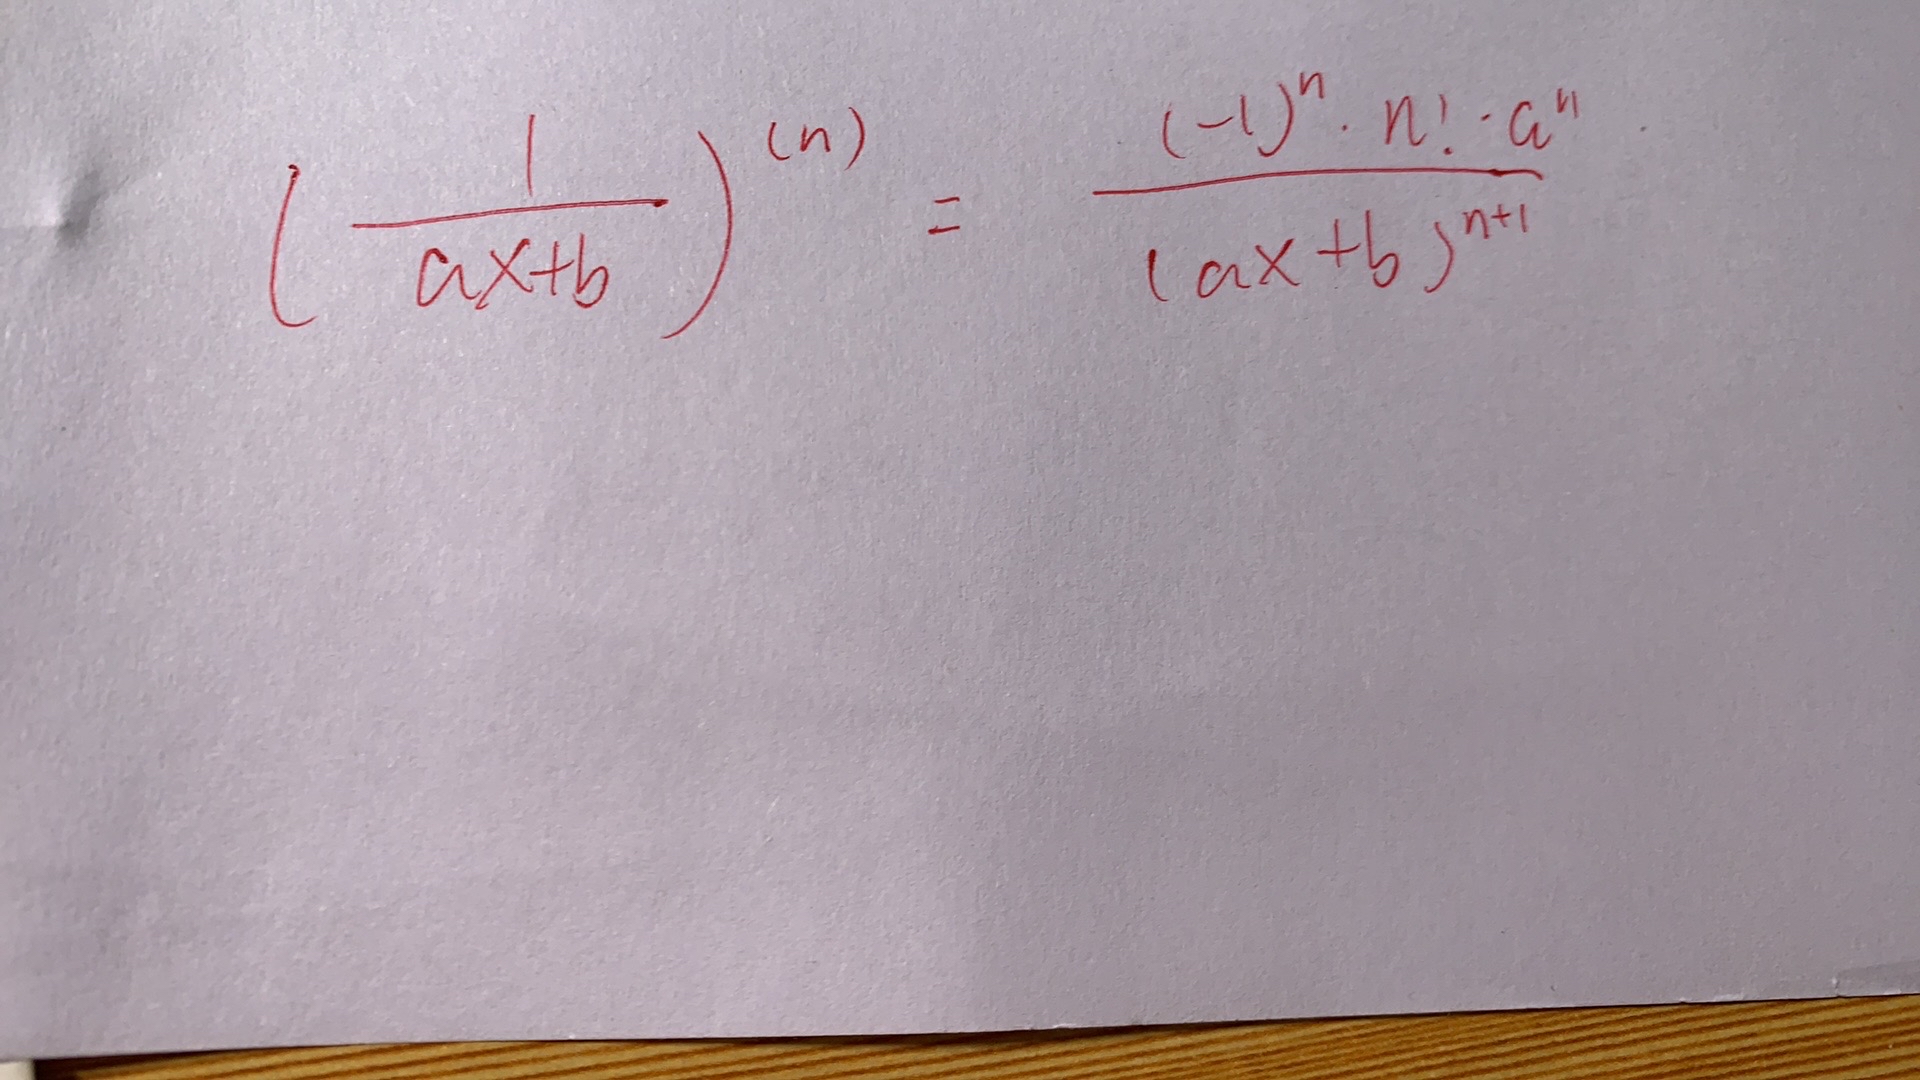 (1/(ax+b))^(n) = ((-1)^n · n! · a^n)/((ax+b)^(n+1))